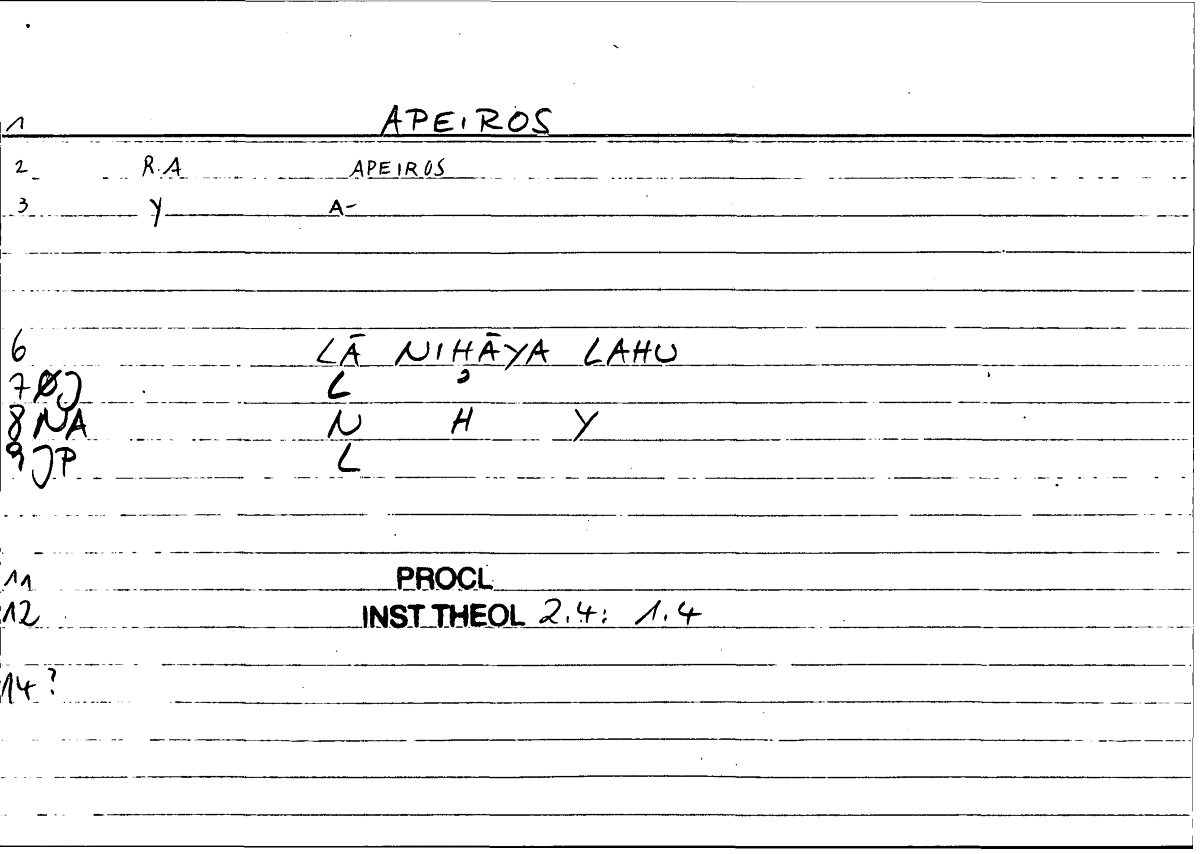 1 APEIROS
2 R.A APEIROS
3 Y A-
6 LĀ NIHĀYA LAHU
7 ØJ L ʾ
8 NA N H Y
9 JP L
11 PROCL
12 INST THEOL 2.4: 1.4
14?